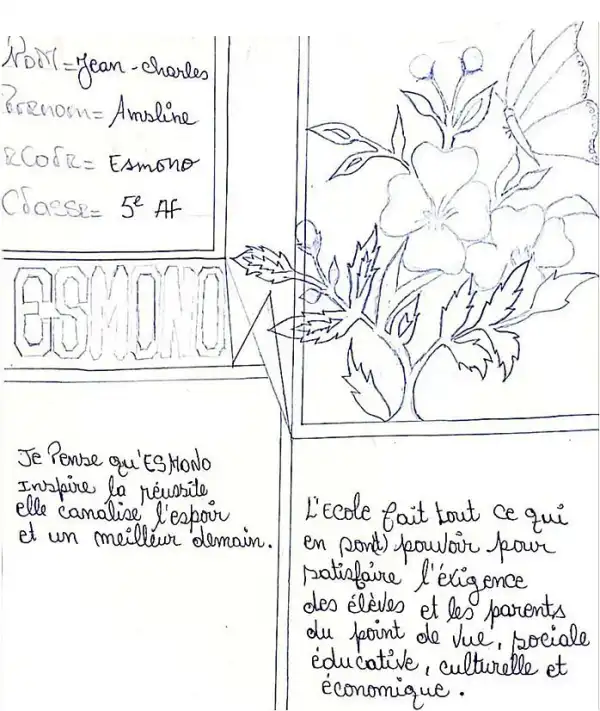 NOM = Jean-charles
Prenom = Amsline
ECole = Esmono
Classe = 5e Af
ESMONO
Je Pense qu'ESMONO
Inspire la réussite
elle canalise l'espoir
et un meilleur demain.
L'Ecole fait tout ce qui
en son(t) pouvoir pour
satisfaire l'éxigence
des élèves et les parents
du point de vue, sociale
éducative, culturelle et
économique.